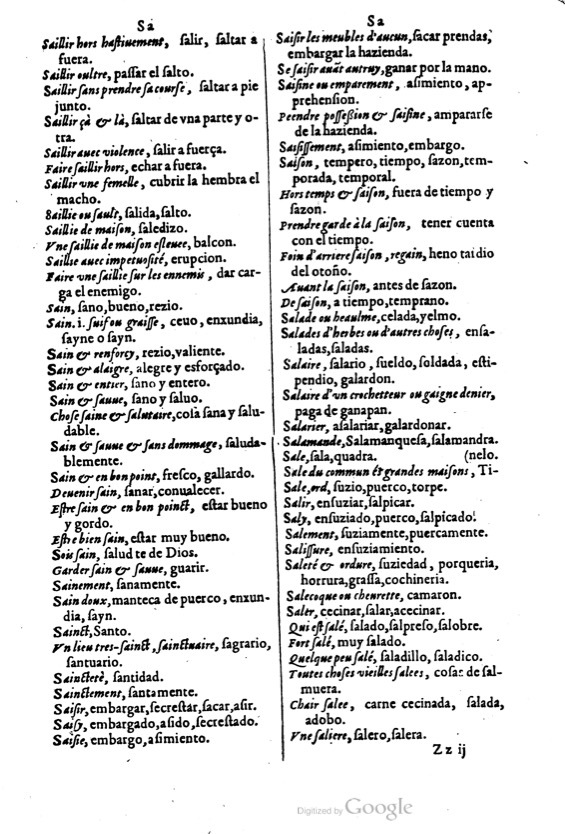 Sa
Saillir hors hastiuement, salir, saltar a
fuera.
Saillir oultre, passar el salto.
Saillir sans prendre sa course, saltar a pie
junto.
Saillir çà & là, saltar de vna parte y o-
tra.
Saillir auec violence, salir a fuerça.
Faire saillir hors, echar a fuera.
Saillir vne femelle, cubrir la hembra el
macho.
Saillie ou sault, salida, salto.
Saillie de maison, saledizo.
Vne saillie de maison esleuee, balcon.
Saillie auec impetuosité, erupcion.
Faire vne saillie sur les ennemis, dar car-
ga el enemigo.
Sain, sano, bueno, rezio.
Sain. i. suif ou graisse, ceuo, enxundia,
sayne o sayn.
Sain & renforcy, rezio, valiente.
Sain & alaigre, alegre y esforçado.
Sain & entier, sano y entero.
Sain & sauue, sano y saluo.
Chose saine & salutaire, cosa sana y salu-
dable.
Sain & sauue & sans dommage, saluda-
blemente.
Sain & en bon point, fresco, gallardo.
Deuenir sain, sanar, conualecer.
Estre sain & en bon poinct, estar bueno
y gordo.
Estre bien sain, estar muy bueno.
Sois sain, salud te de Dios.
Garder sain & sauue, guarir.
Sainement, sanamente.
Sain doux, manteca de puerco, enxun-
dia, sayn.
Sainct, Santo.
Vn lieu tres-sainct, sainctuaire, sagrario,
santuario.
Saincteté, santidad.
Sainctement, santamente.
Saisir, embargar, secrestar, sacar, asir.
Saisy, embargado, asido, secrestado.
Saisie, embargo, asimiento.
Sa
Saisir les meubles d'aucun, sacar prendas,
embargar la hazienda.
Se saisir auāt autruy, ganar por la mano.
Saisine ou emparement, asimiento, ap-
prehension.
Peendre possession & saisine, ampararse
de la hazienda.
Saisissement, asimiento, embargo.
Saison, tempero, tiempo, sazon, tem-
porada, temporal.
Hors temps & saison, fuera de tiempo y
sazon.
Prendre garde à la saison, tener cuenta
con el tiempo.
Foin d'arriere saison, regain, heno tardio
del otoño.
Auant la saison, antes de sazon.
De saison, a tiempo, temprano.
Salade ou heaulme, celada, yelmo.
Salades d'herbes ou d'autres choses, ensa-
ladas, saladas.
Salaire, salario, sueldo, soldada, esti-
pendio, galardon.
Salaire d'vn crochetteur ou gaigne denier,
paga de ganapan.
Salarier, asalariar, galardonar.
Salamande, Salamanquesa, salamandra.
Sale, sala, quadra. (nelo.
Sale du commun et grandes maisons, Ti-
Sale, ord, suzio, puerco, torpe.
Salir, ensuziar, salpicar.
Saly, ensuziado, puerco, salpicado.
Salement, suziamente, puercamente.
Salissure, ensuziamiento.
Saleté & ordure, suziedad, porqueria,
horrura, grassa, cochineria.
Salecoque ou cheurette, camaron.
Saler, cecinar, salar, acecinar.
Qui est salé, salado, salpreso, salobre.
Fort salé, muy salado.
Quelque peu salé, saladillo, saladico.
Toutes choses vieilles salees, cosas de sal-
muera.
Chair salee, carne cecinada, salada,
adobo.
Vne saliere, salero, salera.
Zz ij
Digitized by Google